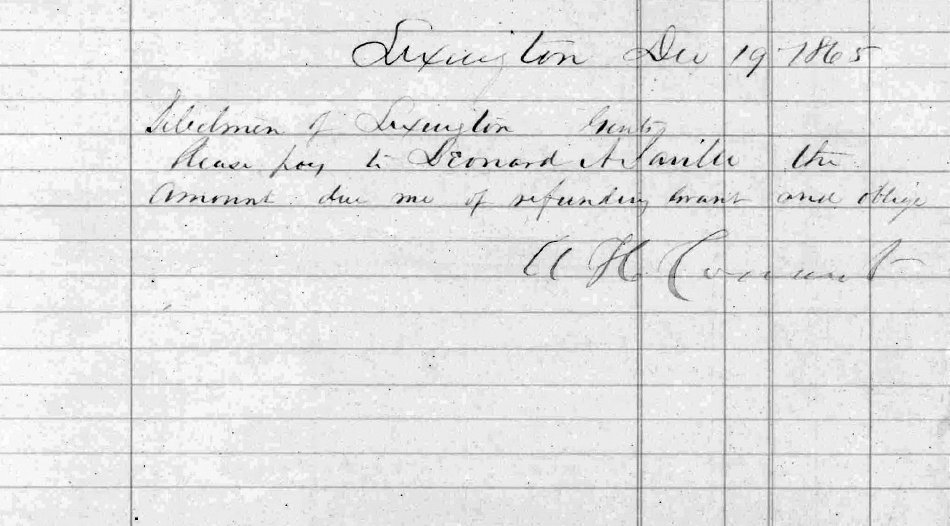 Lexington Dec 19 1865
Selectmen of Lexington Gents
Please pay to Leonard A Saville the
amount due me of refunding grant and oblige
A H Conant